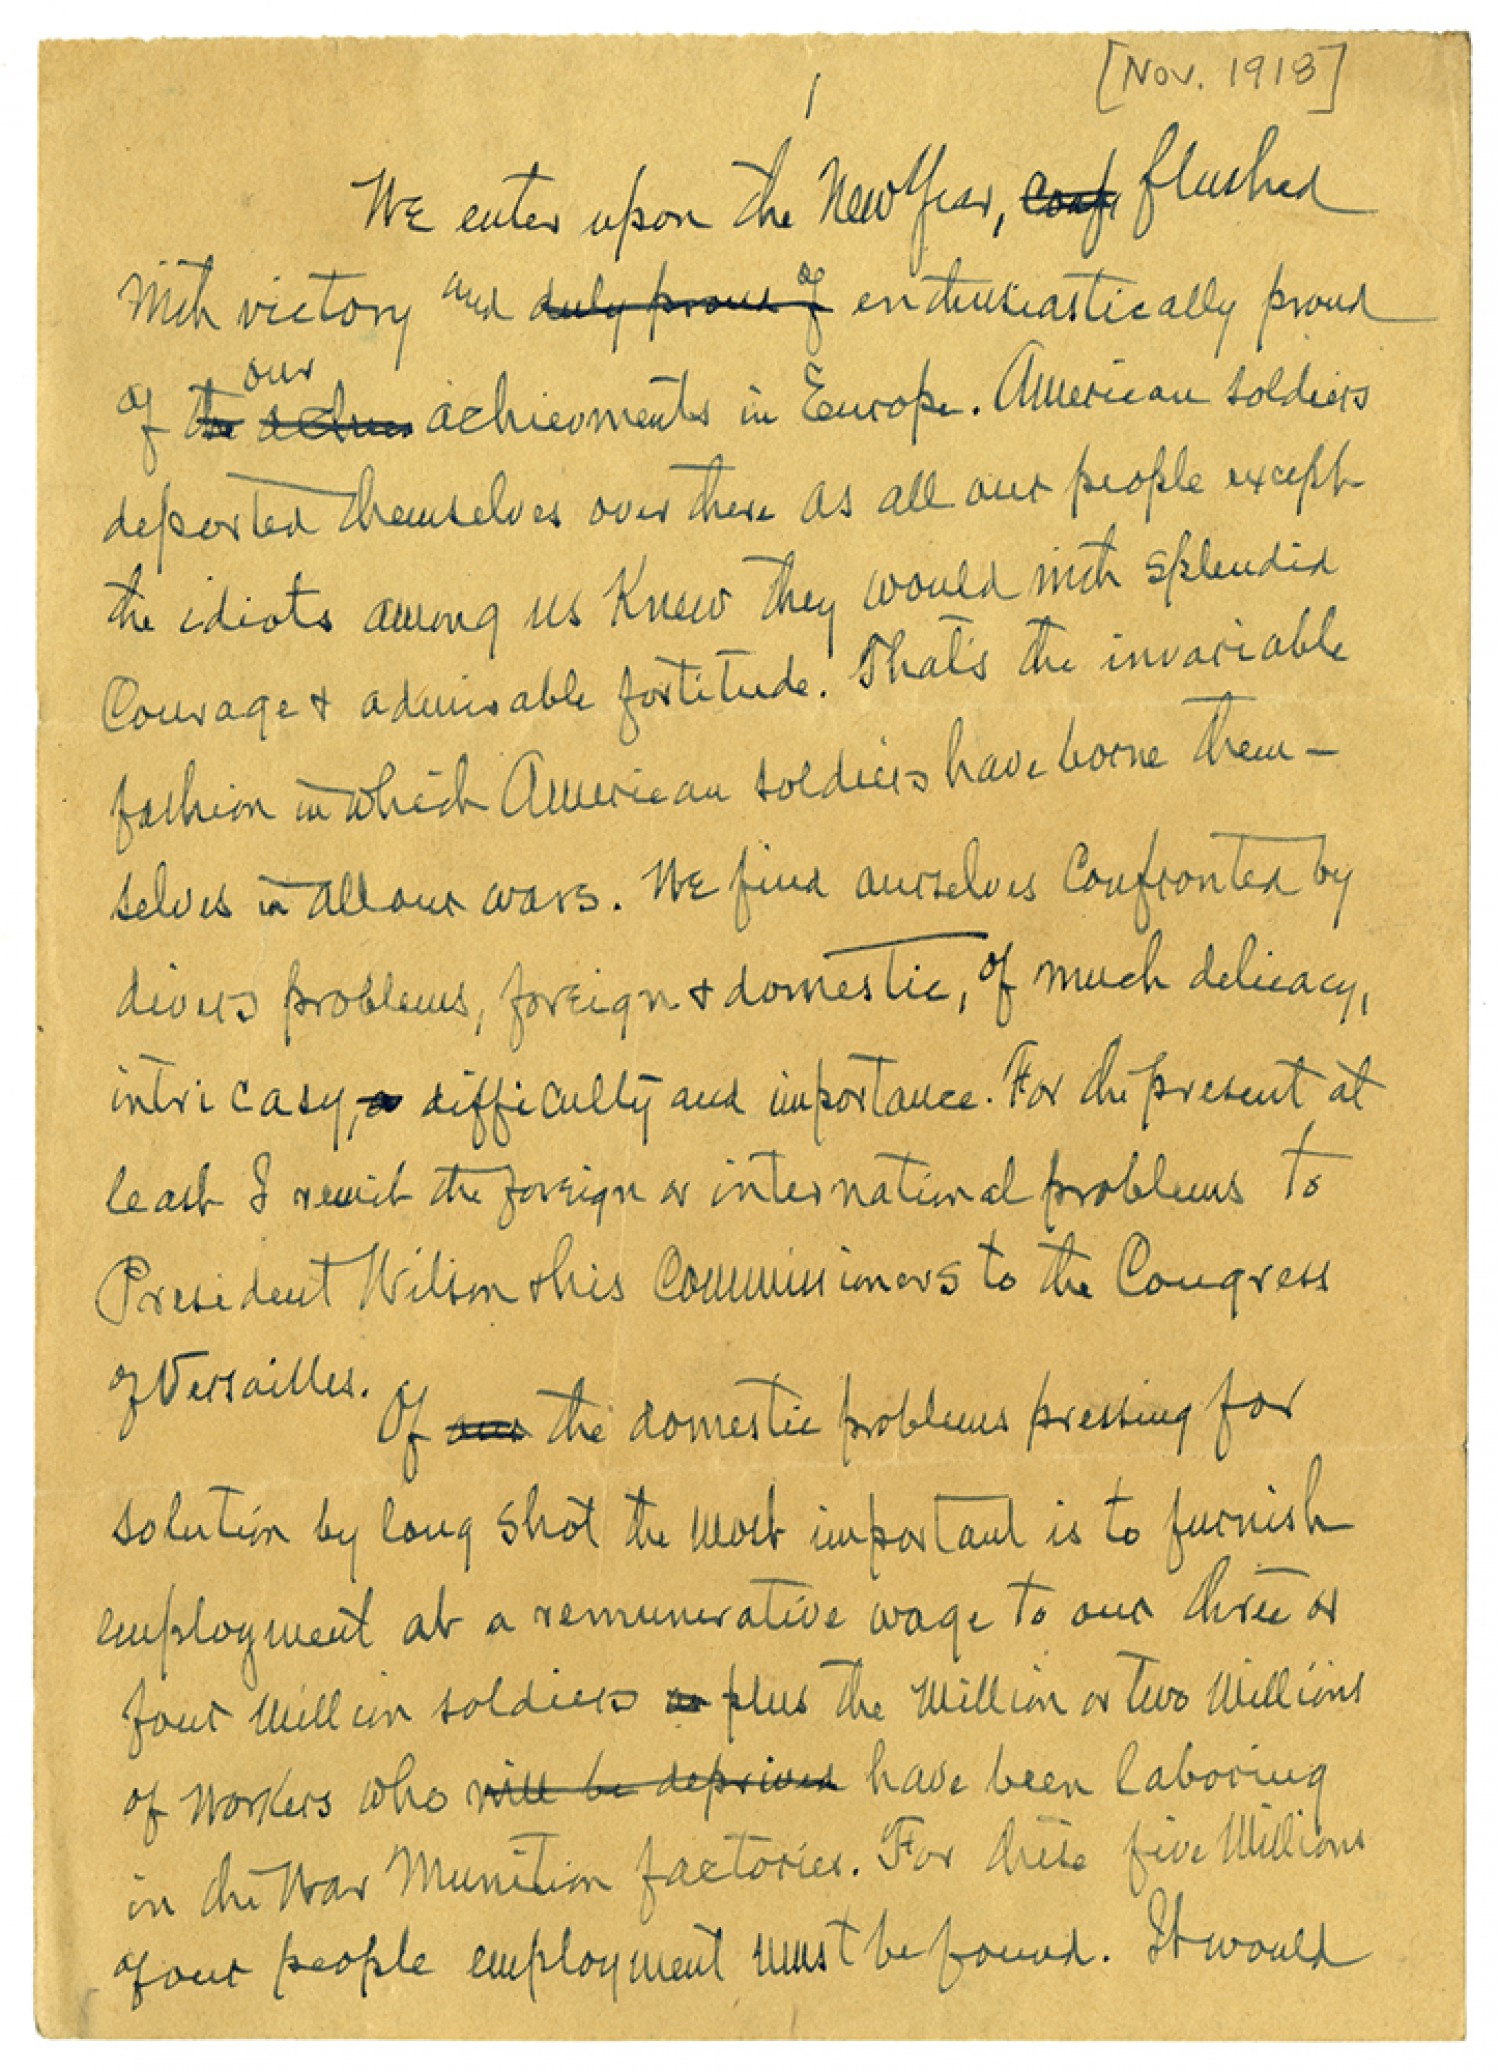 [Nov. 1918]
1
We enter upon the New Year, conf flushed
with victory and duly proud of of enthusiastically proud
of the our achiev achievments in Europe. American soldiers
deported themselves over there as all our people except
the idiots among us knew they would with splendid
Courage & admirable fortitude. That's the invariable
fashion in which American soldiers have borne them-
selves in all our wars. We find ourselves confronted by
divers problems, foreign & domestic, of much delicacy,
intricasy, difficulty and importance. For the present at
least I remit the foreign or international problems to
President Wilson & his Commissioners to the Congress
of Versailles.
Of our the domestic problems pressing for
solution by long shot the most important is to furnish
employment at a remunerative wage to our three or
four million soldiers or plus the million or two millions
of workers who will be deprived have been laboring
in the War Munition factories. For these five millions
of our people employment must be found. It would